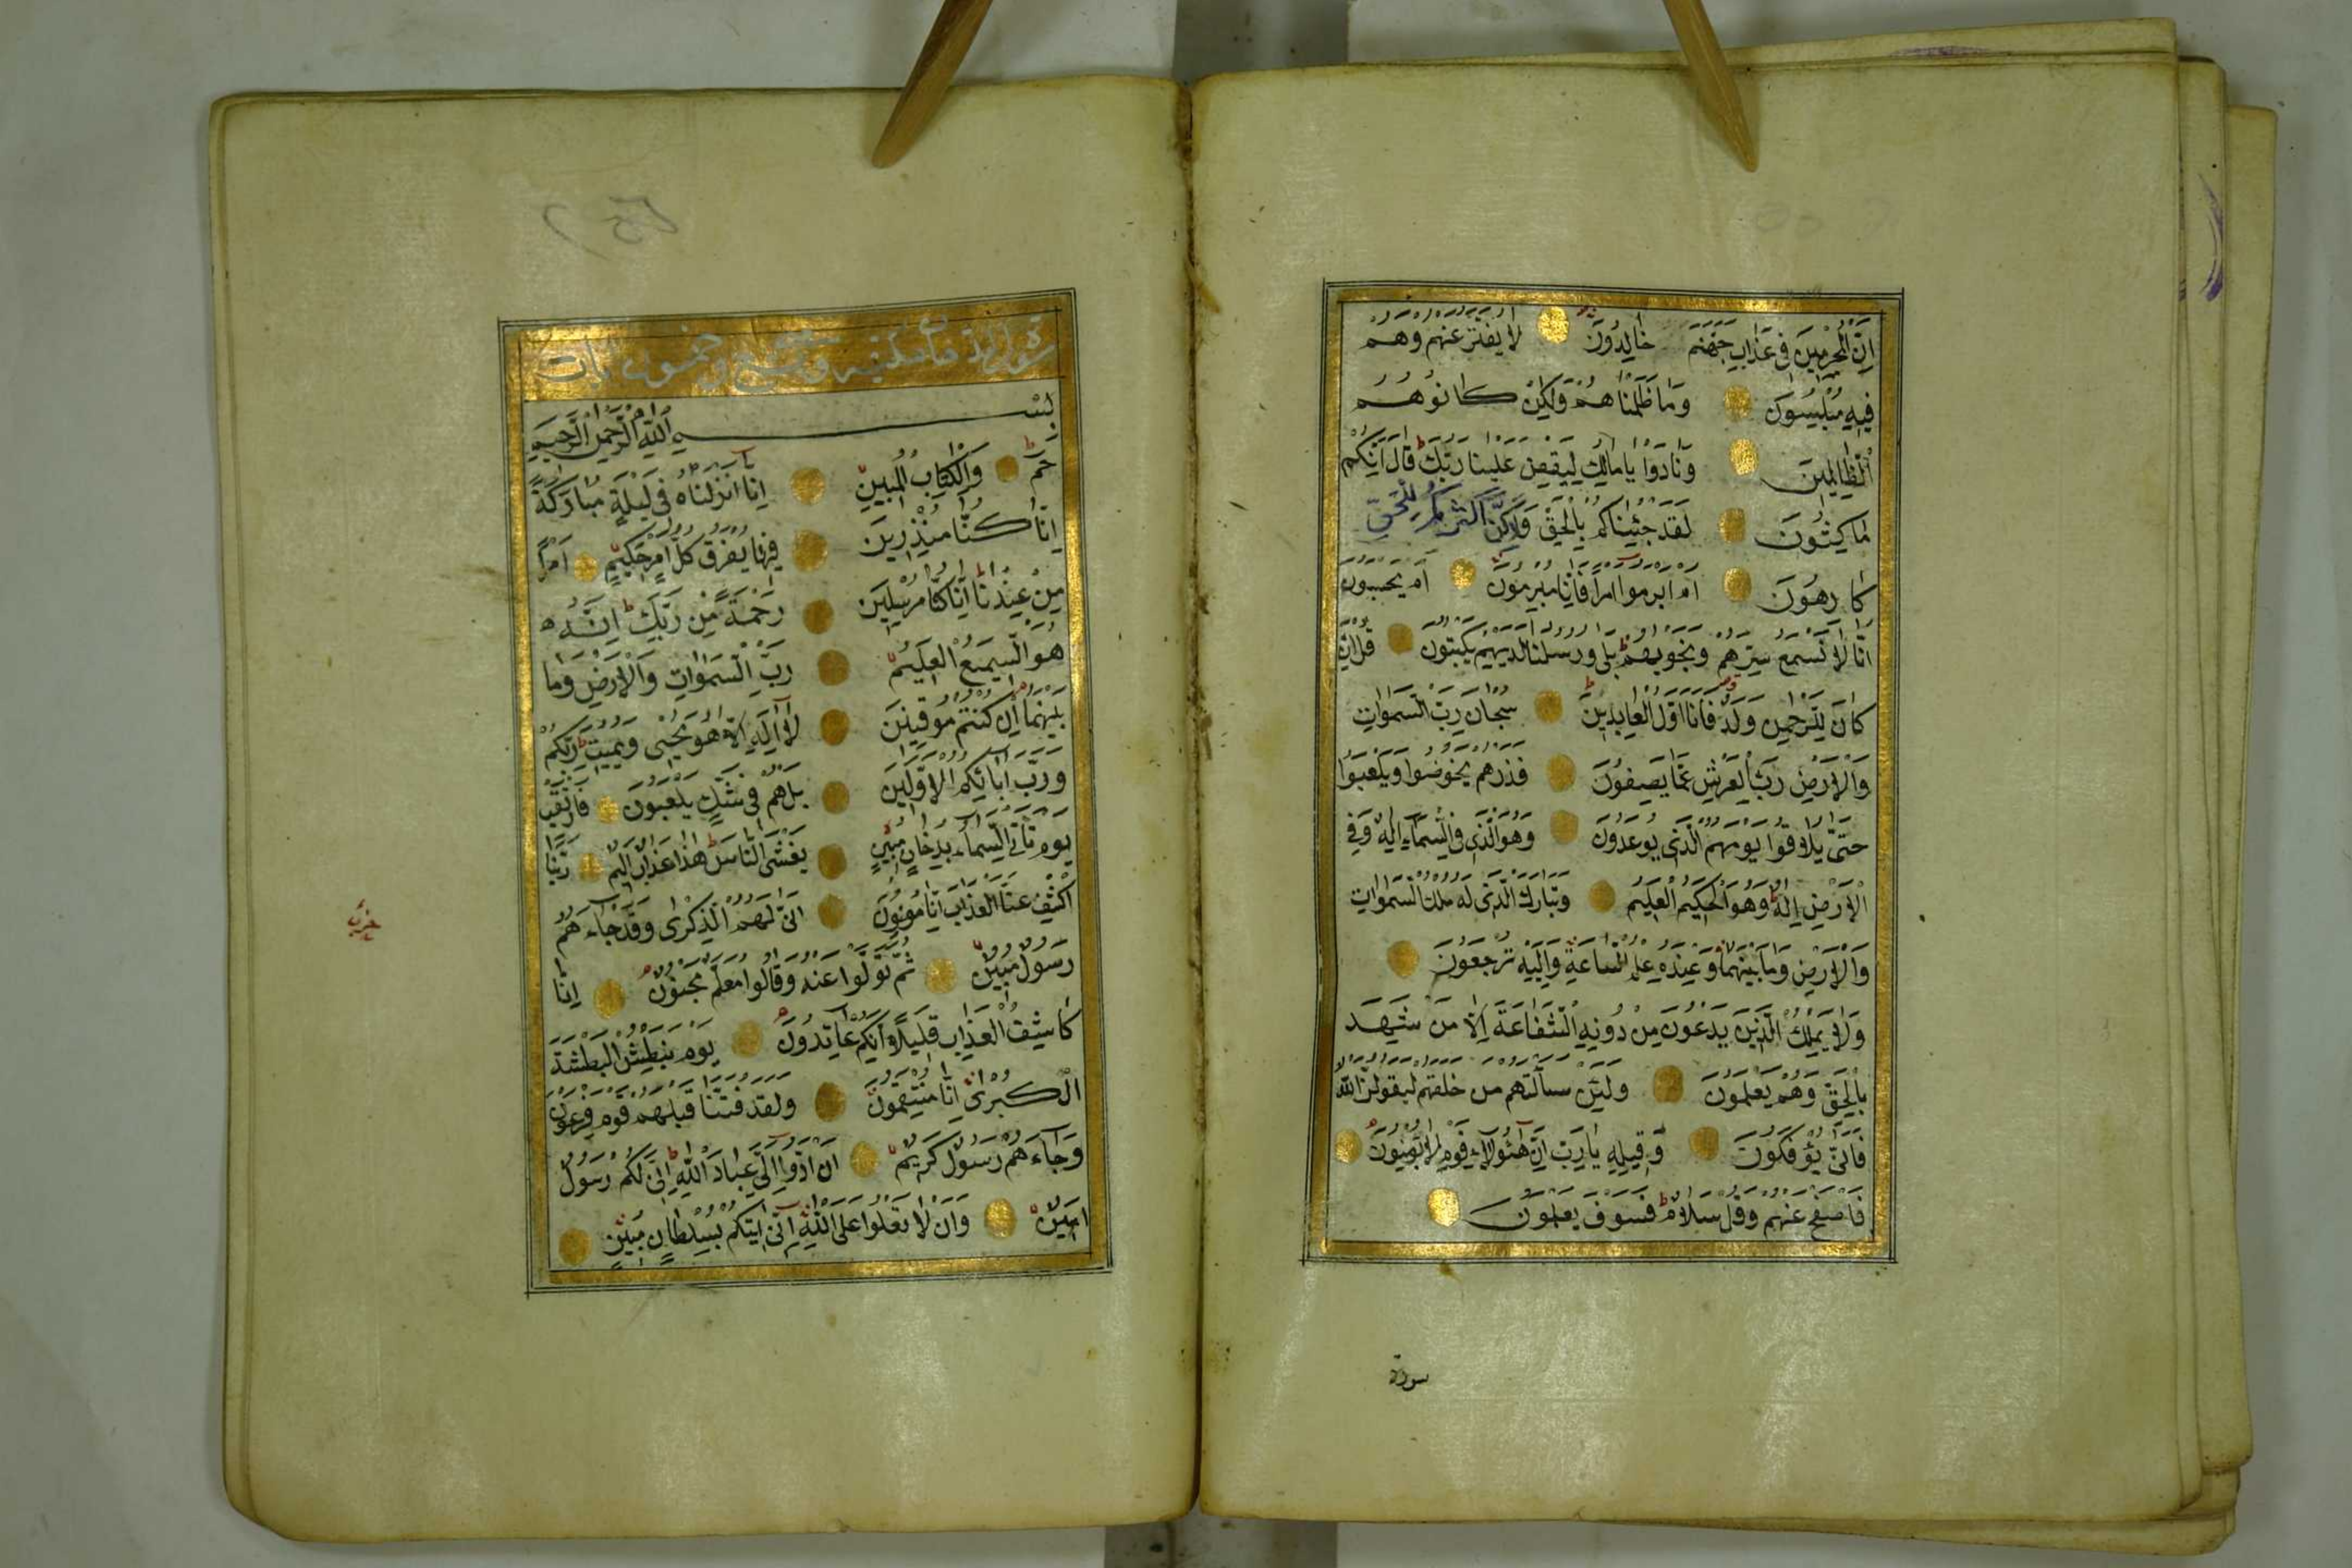 اِنَّ الْمُجْرِمِينَ فِي عَذَابِ جَهَنَّمَ خَالِدُونَ لَا يُفَتَّرُ عَنْهُمْ وَهُمْ
فِيهِ مُبْلِسُونَ وَمَا ظَلَمْنَاهُمْ وَلَكِنْ كَانُوا هُمُ
الظَّالِمِينَ وَنَادَوْا يَا مَالِكُ لِيَقْضِ عَلَيْنَا رَبُّكَ قَالَ اِنَّكُمْ
مَاكِثُونَ لَقَدْ جِئْنَاكُمْ بِالْحَقِّ وَلَكِنَّ اَكْثَرَكُمْ لِلْحَقِّ
كَارِهُونَ اَمْ اَبْرَمُوا اَمْرًا فَاِنَّا مُبْرِمُونَ اَمْ يَحْسَبُونَ
اَنَّا لَا نَسْمَعُ سِرَّهُمْ وَنَجْوٰيهُمْ بَلَى وَرُسُلُنَا لَدَيْهِمْ يَكْتُبُونَ قُلْ اِنْ
كَانَ لِلرَّحْمٰنِ وَلَدٌ فَاَنَا اَوَّلُ الْعَابِدِينَ سُبْحَانَ رَبِّ السَّمٰوَاتِ
وَالْاَرْضِ رَبِّ الْعَرْشِ عَمَّا يَصِفُونَ فَذَرْهُمْ يَخُوضُوا وَيَلْعَبُوا
حَتَّى يُلَاقُوا يَوْمَهُمُ الَّذِي يُوعَدُونَ وَهُوَ الَّذِي فِي السَّمَاءِ اِلٰهٌ وَفِي
الْاَرْضِ اِلٰهٌ وَهُوَ الْحَكِيمُ الْعَلِيمُ وَتَبَارَكَ الَّذِي لَهُ مُلْكُ السَّمٰوَاتِ
وَالْاَرْضِ وَمَا بَيْنَهُمَا وَعِنْدَهُ عِلْمُ السَّاعَةِ وَاِلَيْهِ تُرْجَعُونَ
وَلَا يَمْلِكُ الَّذِينَ يَدْعُونَ مِنْ دُونِهِ الشَّفَاعَةَ اِلَّا مَنْ شَهِدَ
بِالْحَقِّ وَهُمْ يَعْلَمُونَ وَلَئِنْ سَاَلْتَهُمْ مَنْ خَلَقَهُمْ لَيَقُولُنَّ اللّٰهُ
فَاَنَّى يُؤْفَكُونَ وَقِيلِهِ يَا رَبِّ اِنَّ هٰؤُلَاءِ قَوْمٌ لَا يُؤْمِنُونَ
فَاصْفَحْ عَنْهُمْ وَقُلْ سَلَامٌ فَسَوْفَ يَعْلَمُونَ
سورة
سورة الدخان مكية وتسع وخمسون ايات
بِسْمِ اللّٰهِ الرَّحْمٰنِ الرَّحِيمِ
حٰمٓ وَالْكِتَابِ الْمُبِينِ اِنَّا اَنْزَلْنَاهُ فِي لَيْلَةٍ مُبَارَكَةٍ
اِنَّا كُنَّا مُنْذِرِينَ فِيهَا يُفْرَقُ كُلُّ اَمْرٍ حَكِيمٍ اَمْرًا
مِنْ عِنْدِنَا اِنَّا كُنَّا مُرْسِلِينَ رَحْمَةً مِنْ رَبِّكَ اِنَّهُ
هُوَ السَّمِيعُ الْعَلِيمُ رَبِّ السَّمٰوَاتِ وَالْاَرْضِ وَمَا
بَيْنَهُمَا اِنْ كُنْتُمْ مُوقِنِينَ لَا اِلٰهَ اِلَّا هُوَ يُحْيِي وَيُمِيتُ رَبُّكُمْ
وَرَبُّ اٰبَائِكُمُ الْاَوَّلِينَ بَلْ هُمْ فِي شَكٍّ يَلْعَبُونَ فَارْتَقِبْ
يَوْمَ تَأْتِي السَّمَاءُ بِدُخَانٍ مُبِينٍ يَغْشَى النَّاسَ هٰذَا عَذَابٌ اَلِيمٌ رَبَّنَا
اكْشِفْ عَنَّا الْعَذَابَ اِنَّا مُؤْمِنُونَ اَنَّى لَهُمُ الذِّكْرٰى وَقَدْ جَاءَهُمْ
رَسُولٌ مُبِينٌ ثُمَّ تَوَلَّوْا عَنْهُ وَقَالُوا مُعَلَّمٌ مَجْنُونٌ اِنَّا
كَاشِفُ الْعَذَابِ قَلِيلًا اِنَّكُمْ عَائِدُونَ يَوْمَ نَبْطِشُ الْبَطْشَةَ
الْكُبْرٰى اِنَّا مُنْتَقِمُونَ وَلَقَدْ فَتَنَّا قَبْلَهُمْ قَوْمَ فِرْعَوْنَ
وَجَاءَهُمْ رَسُولٌ كَرِيمٌ اَنْ اَدُّوا اِلَيَّ عِبَادَ اللّٰهِ اِنِّي لَكُمْ رَسُولٌ
اَمِينٌ وَاَنْ لَا تَعْلُوا عَلَى اللّٰهِ اِنِّي اٰتِيكُمْ بِسُلْطَانٍ مُبِينٍ
حزب